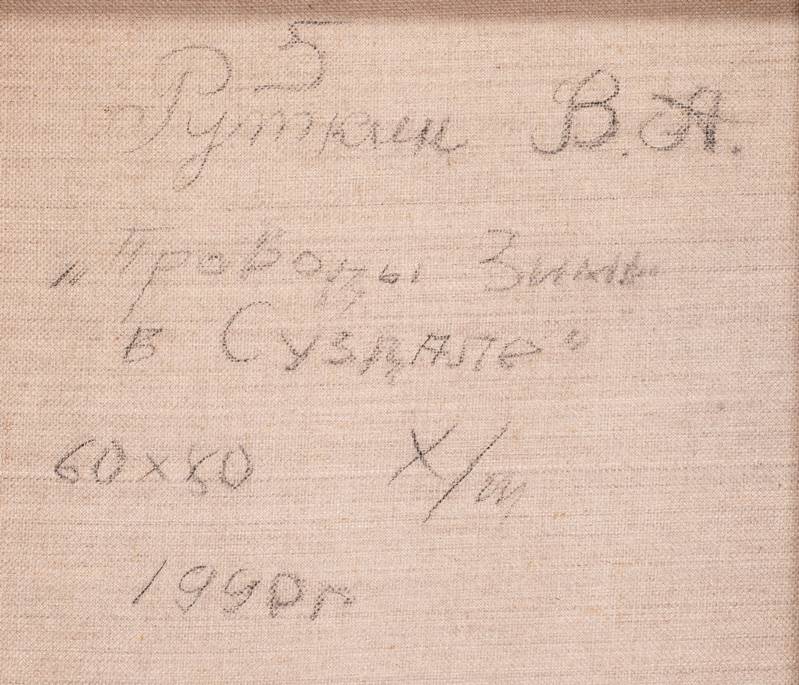 5
Руткин В.А.
„Проводы Зимы
в Суздале"
60х80 Х/м
1990г